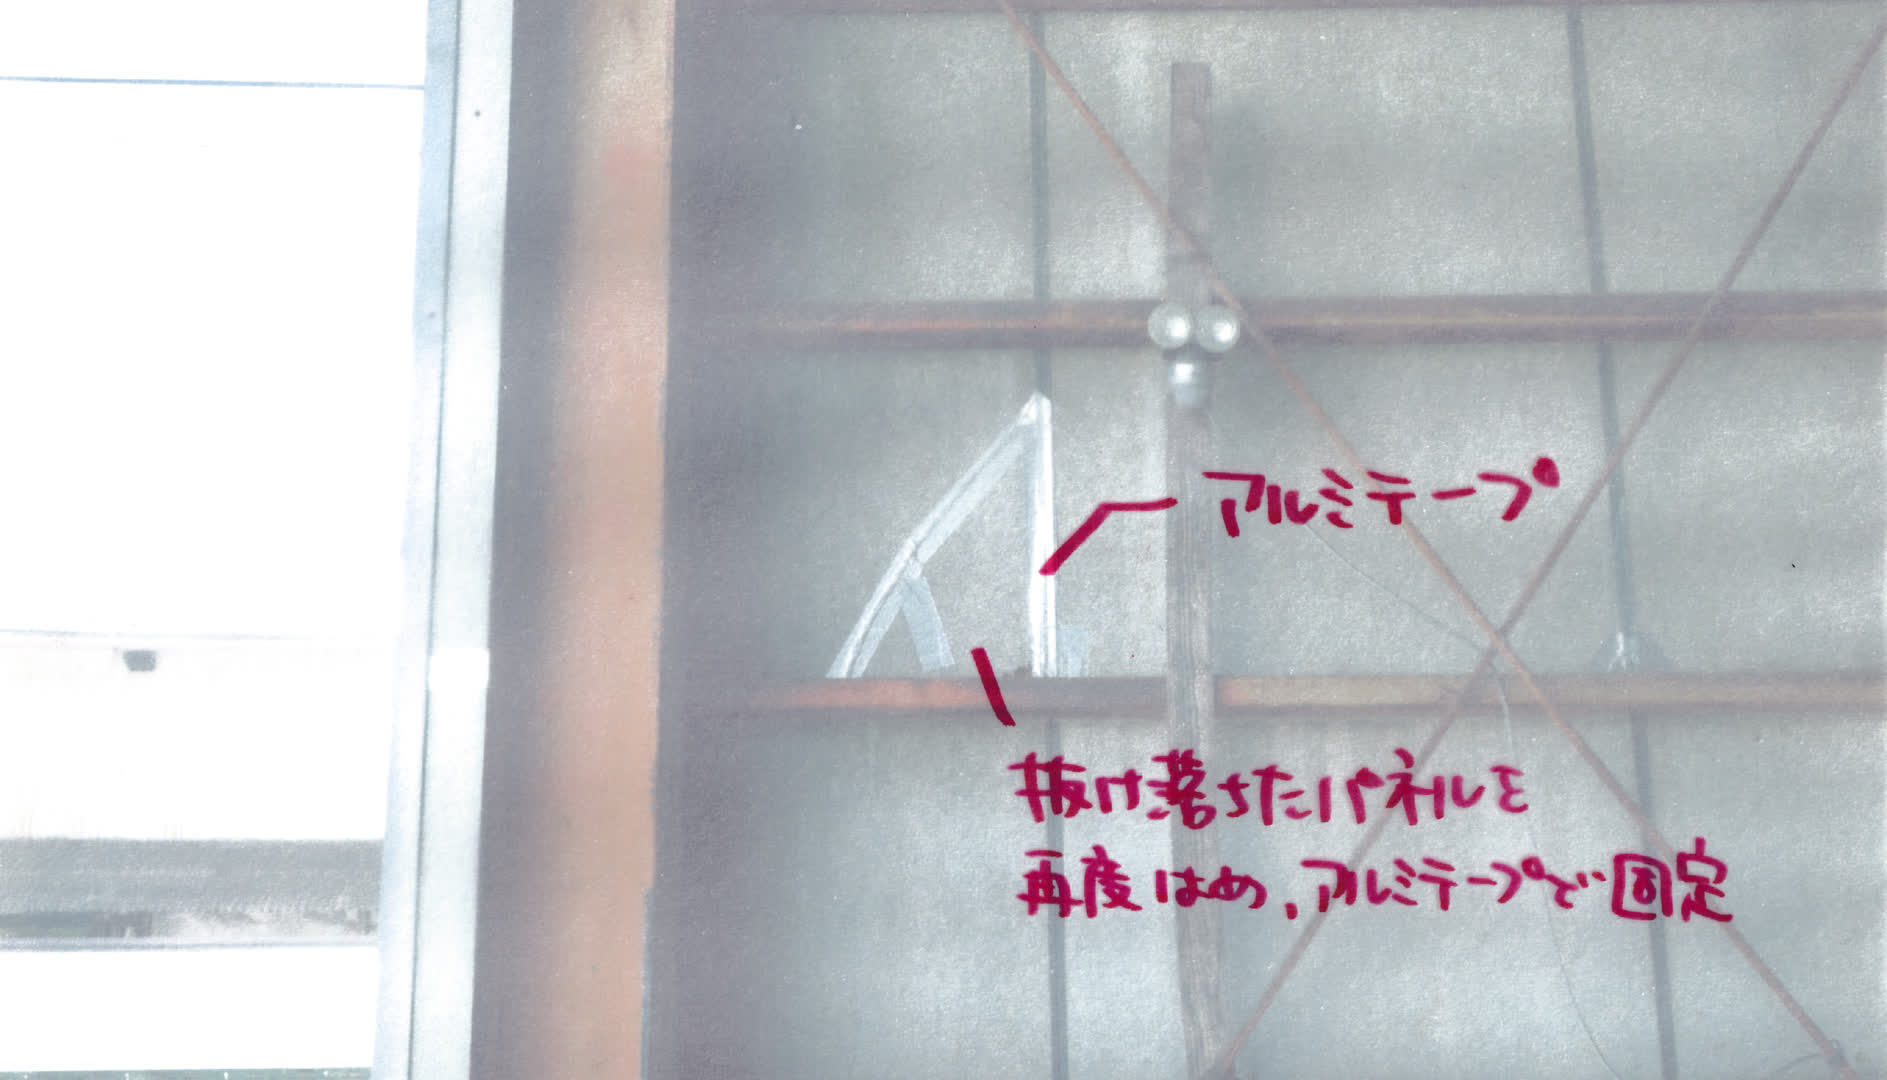 アルミテープ
抜け落ちたパネルを
再度はめ、アルミテープで固定